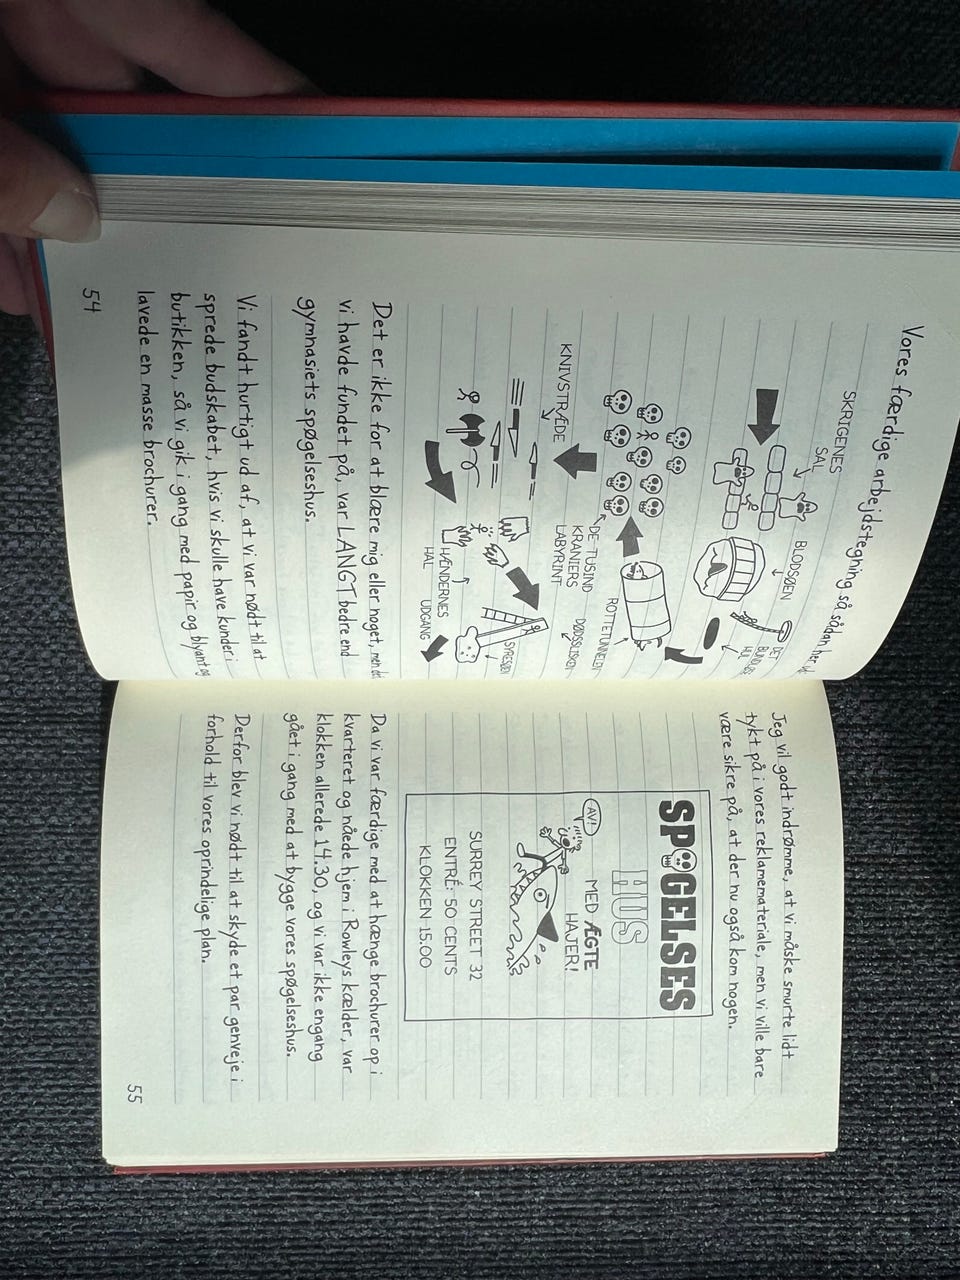 Vores færdige arbejdstegning så sådan her ud
SKRIGENES
SAL
BLODSØEN
DET
BUNDLØSE
HUL
ROTTETUNNELEN
DE TUSIND
KRANIERS
LABYRINT
KNIVSTRÆDE
HÆNDERNES
HAL
DØDSSLISKEN
SYRESØEN
UDGANG
Det er ikke for at blære mig eller noget, men det
vi havde fundet på, var LANGT bedre end
gymnasiets spøgelseshus.
Vi fandt hurtigt ud af, at vi var nødt til at
sprede budskabet, hvis vi skulle have kunder i
butikken, så vi gik i gang med papir og blyant og
lavede en masse brochurer.
54
Jeg vil godt indrømme, at vi måske smurte lidt
tykt på i vores reklamemateriale, men vi ville bare
være sikre på, at der nu også kom nogen.
SPØGELSES
HUS
MED ÆGTE
HAJER!
AV!
SURREY STREET 32
ENTRÉ: 50 CENTS
KLOKKEN 15.00
Da vi var færdige med at hænge brochurer op i
kvarteret og nåede hjem i Rowleys kælder, var
klokken allerede 14.30, og vi var ikke engang
gået i gang med at bygge vores spøgelseshus.
Derfor blev vi nødt til at skyde et par genveje i
forhold til vores oprindelige plan.
55